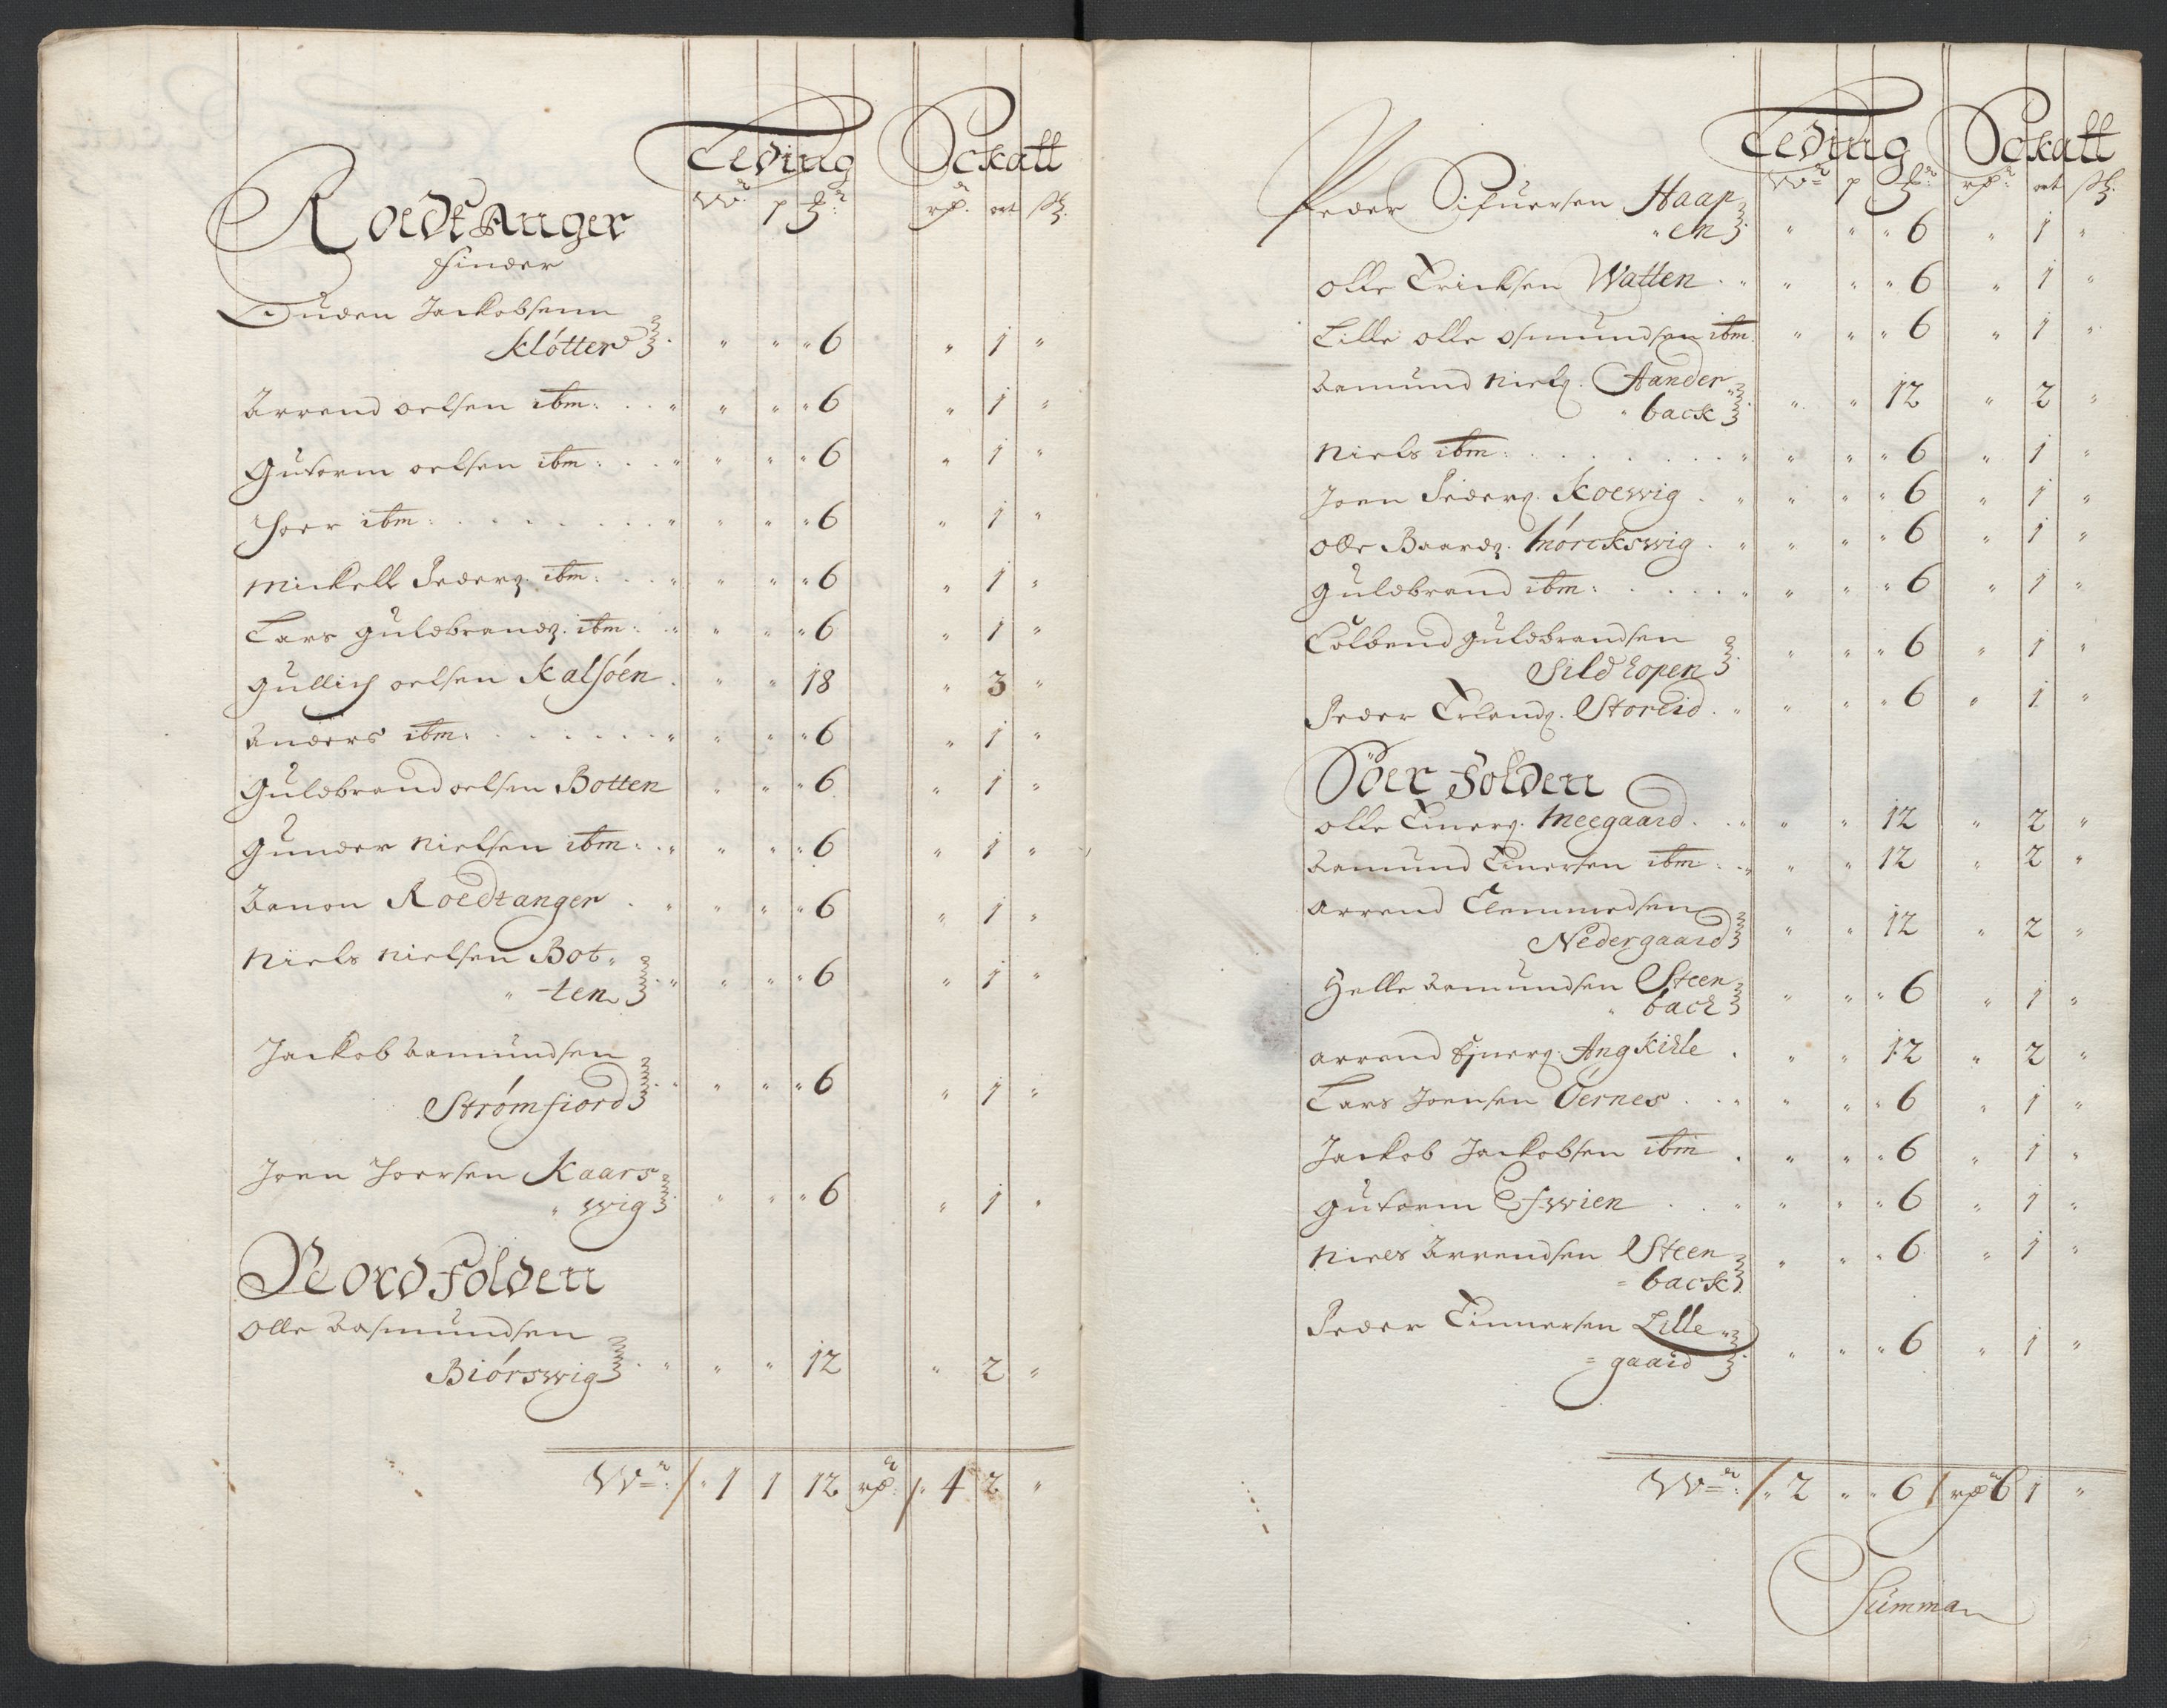 Leding Schatt
RoedtAnger W p ℔ rd ort sk
finder
Auden Jackobsenn
Klótter " " " 6 " 1 "
Arrend oelsen ibm: " " " 6 " 1 "
Gutorm oelsen ibm: " " " 6 " 1 "
Joer ibm: " " " 6 " 1 "
Mickell Peders. ibm: " " " 6 " 1 "
Lars Guldbrands. ibm: " " " 6 " 1 "
Gullich oelsen Kalsóen " " 18 " 3 "
Anders ibm: " " " 6 " 1 "
Guldbrand oelsen Botten " " " 6 " 1 "
Gunder Nielsen ibm: " " " 6 " 1 "
Aamon Roedtanger " " " 6 " 1 "
Niels Nielsen Bot-
ten " " " 6 " 1 "
Jackob Aamundsen
Strómfiord " " " 6 " 1 "
Joen Joersen Kaars
wig " " " 6 " 1 "
Nordfolden
Olle Aasmundsen
Biórswig " " 12 " 2 "
W: 1 1 12 rd 4 2 "
Leding Schatt
Peder Sifuersen Haap W p ℔ rd ort sk
en " " " 6 " 1 "
Olle Ericksen Watten " " " 6 " 1 "
Lille olle osmundsen ibm " " " 6 " 1 "
Aamund Niels. Aander
back " " 12 " 2 "
Niels ibm: " " " 6 " 1 "
Joen Peders. Koewig " " " 6 " 1 "
Olle Baards. Mórckswig " " " 6 " 1 "
Guldbrand ibm: " " " 6 " 1 "
Colbend guldbrandsen
Sildhopen " " " 6 " 1 "
Peder Erlands. Storeid " " " 6 " 1 "
Söer folden
Olle Einers. Meegaard " " 12 " 2 "
Aamund Einersen ibm " " 12 " 2 "
Arrend Clemmedsen
Nedergaard " " 12 " 2 "
Helle Aamundsen Steen
back " " " 6 " 1 "
Arrend Ejners. Angkilde " " 12 " 2 "
Lars Joensen Óernes " " " 6 " 1 "
Jackob Jackobsen ibm " " " 6 " 1 "
Gutorm Efwien " " " 6 " 1 "
Niels Arrendsen Steen
back " " " 6 " 1 "
Peder Einnersen Lille
gaard " " " 6 " 1 "
W: 2 " " 6 rd 6 1 "
Summa